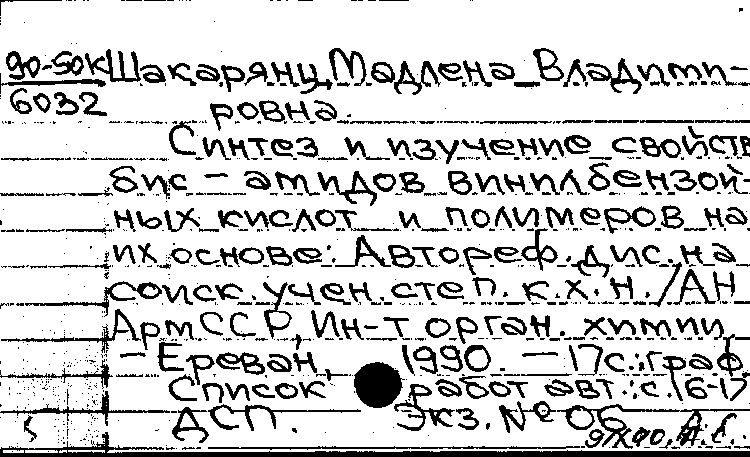 90-50к Шакарянц, Мадлена Влади­ми-
6032 ровна.
Синтез и изучение свойств
бис-амидов винилбензой-
ных кислот и полимеров на
их основе: Автореф. дис. на
соиск. учен. степ. к.х.н. / АН
АрмССР, Ин-т орган. химии
- Ереван, 1990. - 17с.: граф.
Список работ авт.: с. 16-17
ДСП. Экз. № 06